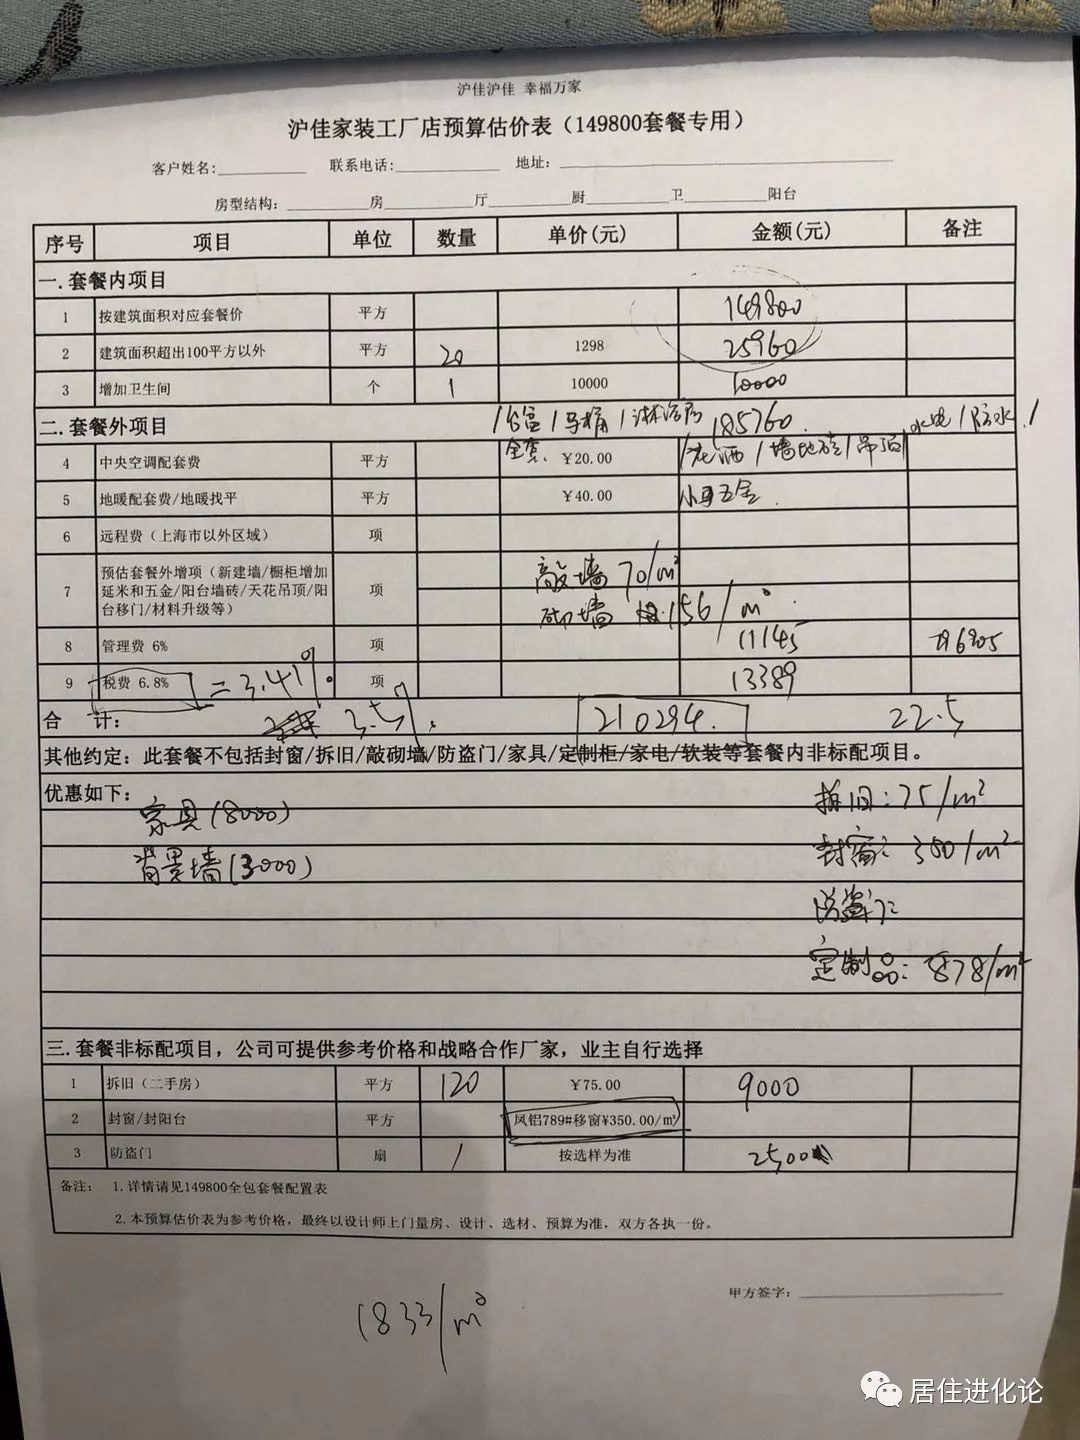 沪佳沪佳 幸福万家
沪佳家装工厂店预算估价表（149800套餐专用）
客户姓名:__________ 联系电话:__________ 地址：__________
房型结构：__________房__________厅__________厨__________卫__________阳台
序号 项目 单位 数量 单价(元) 金额(元) 备注
一.套餐内项目
1 按建筑面积对应套餐价 平方 149800
2 建筑面积超出100平方以外 平方 20 1298 25960
3 增加卫生间 个 1 10000 10000
二.套餐外项目 /马桶/淋浴房 185760 水电/防水/
4 中央空调配套费 平方 全套 ￥20.00 /花洒/墙地砖/吊顶/
5 地暖配套费/地暖找平 平方 ￥40.00 五金
6 远程费（上海市以外区域） 项
7 预估套餐外增项（新建墙/橱柜增加延米和五金/阳台墙砖/天花吊顶/阳台移门/材料升级等） 项 敲墙 70/m²
砌墙 156/m²
8 管理费 6% 项 11145
9 税费 6.8% =3.41% 项 13389
合 计： 3.5% 210294. 22.5
其他约定：此套餐不包括封窗/拆旧/敲砌墙/防盗门/家具/定制柜/家电/软装等套餐内非标配项目。
优惠如下：
家具(8000)
背景墙(3000)
拆旧：75/m²
封窗：350/m²
防盗门：
定制品：878/m²
三.套餐非标配项目，公司可提供参考价格和战略合作厂家，业主自行选择
1 拆旧（二手房） 平方 120 ￥75.00 9000
2 封窗/封阳台 平方 凤铝789#移窗¥350.00/㎡
3 防盗门 扇 1 按选样为准 2500
备注： 1.详情请见149800全包套餐配置表
2.本预算估价表为参考价格，最终以设计师上门量房、设计、选材、预算为准，双方各执一份。
甲方签字：__________
1833/m²
居住进化论